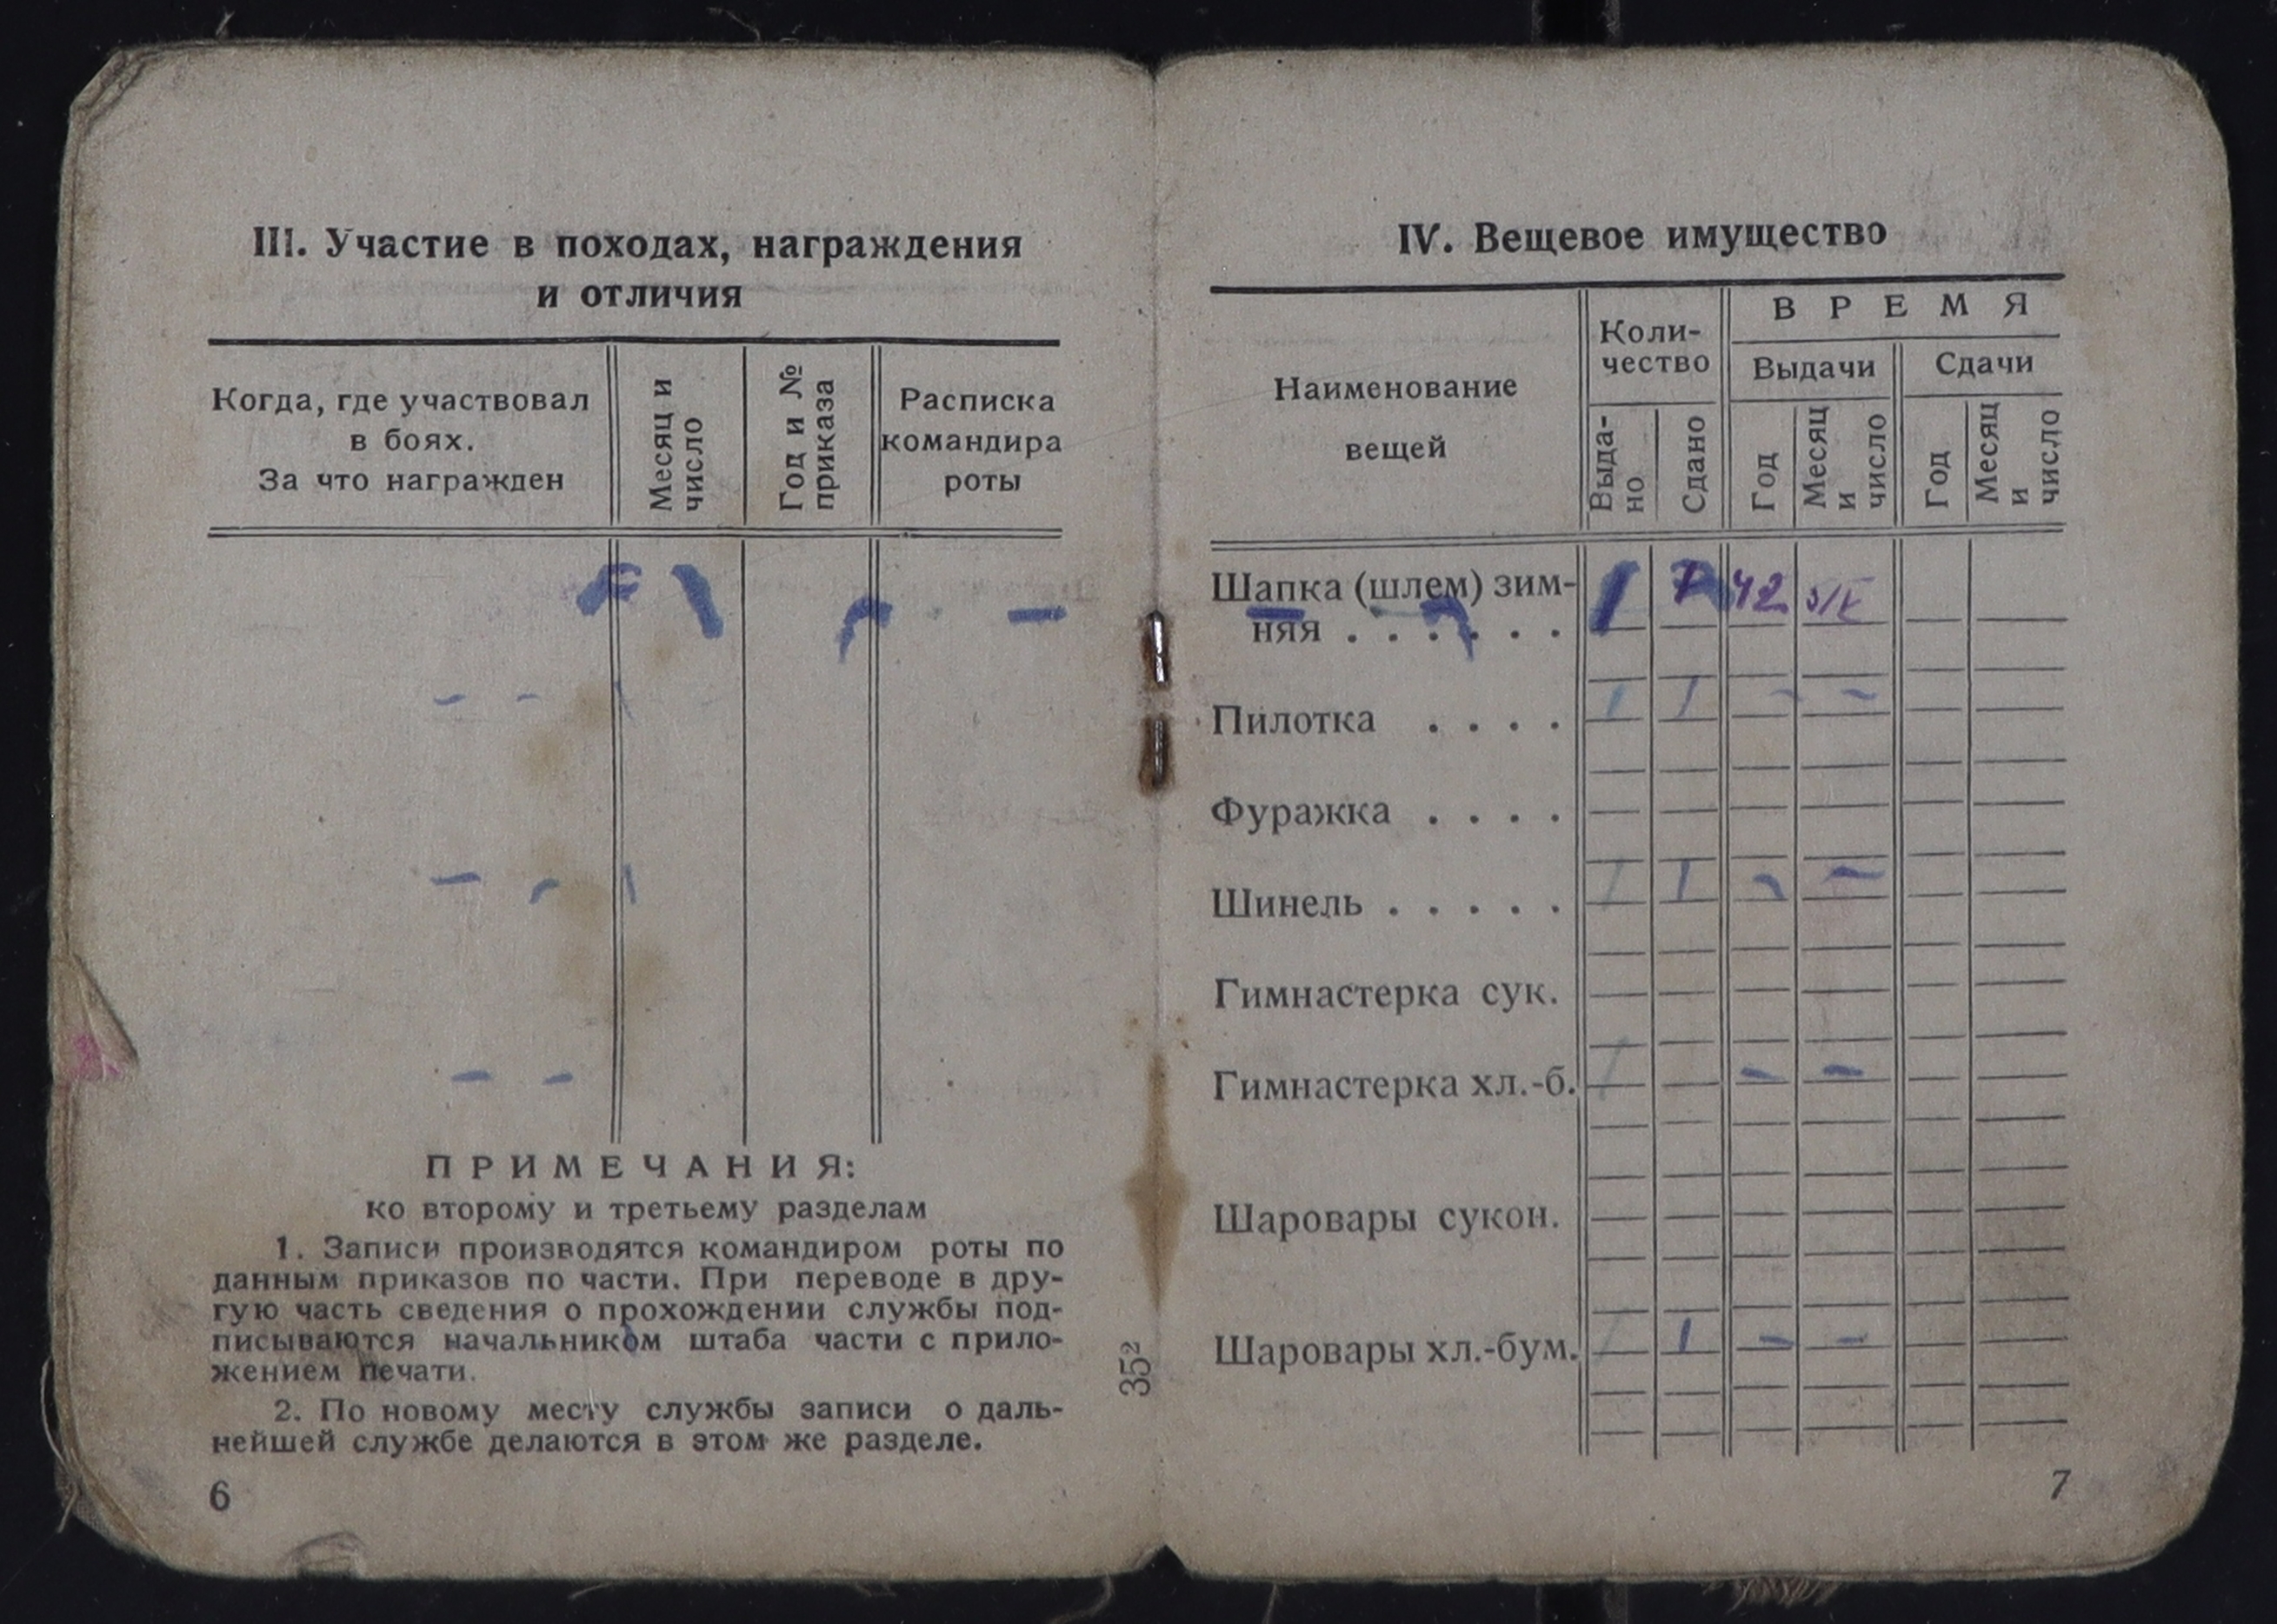 III. Участие в походах, награждения
и отличия
Когда, где участвовал
в боях.
За что награжден
Месяц и
число
Год и №
приказа
Расписка
командира
роты
ПРИМЕЧАНИЯ:
ко второму и третьему разделам
1. Записи производятся командиром роты по
данным приказов по части. При переводе в дру-
гую часть сведения о прохождении службы под-
писываются начальником штаба части с прило-
жением печати.
2. По новому месту службы записи о даль-
нейшей службе делаются в этом же разделе.
6
35²
IV. Вещевое имущество
Наименование
вещей
Коли-
чество
Выда-
но
Сдано
ВРЕМЯ
Выдачи
Сдачи
Год
Месяц
и
число
Год
Месяц
и
число
Шапка (шлем) зим-
няя . . . . . . 1 42
Пилотка . . . . 1 1
Фуражка . . . .
Шинель . . . . . 1 1
Гимнастерка сук.
Гимнастерка хл.-б. 1
Шаровары сукон.
Шаровары хл.-бум. 1 1
7